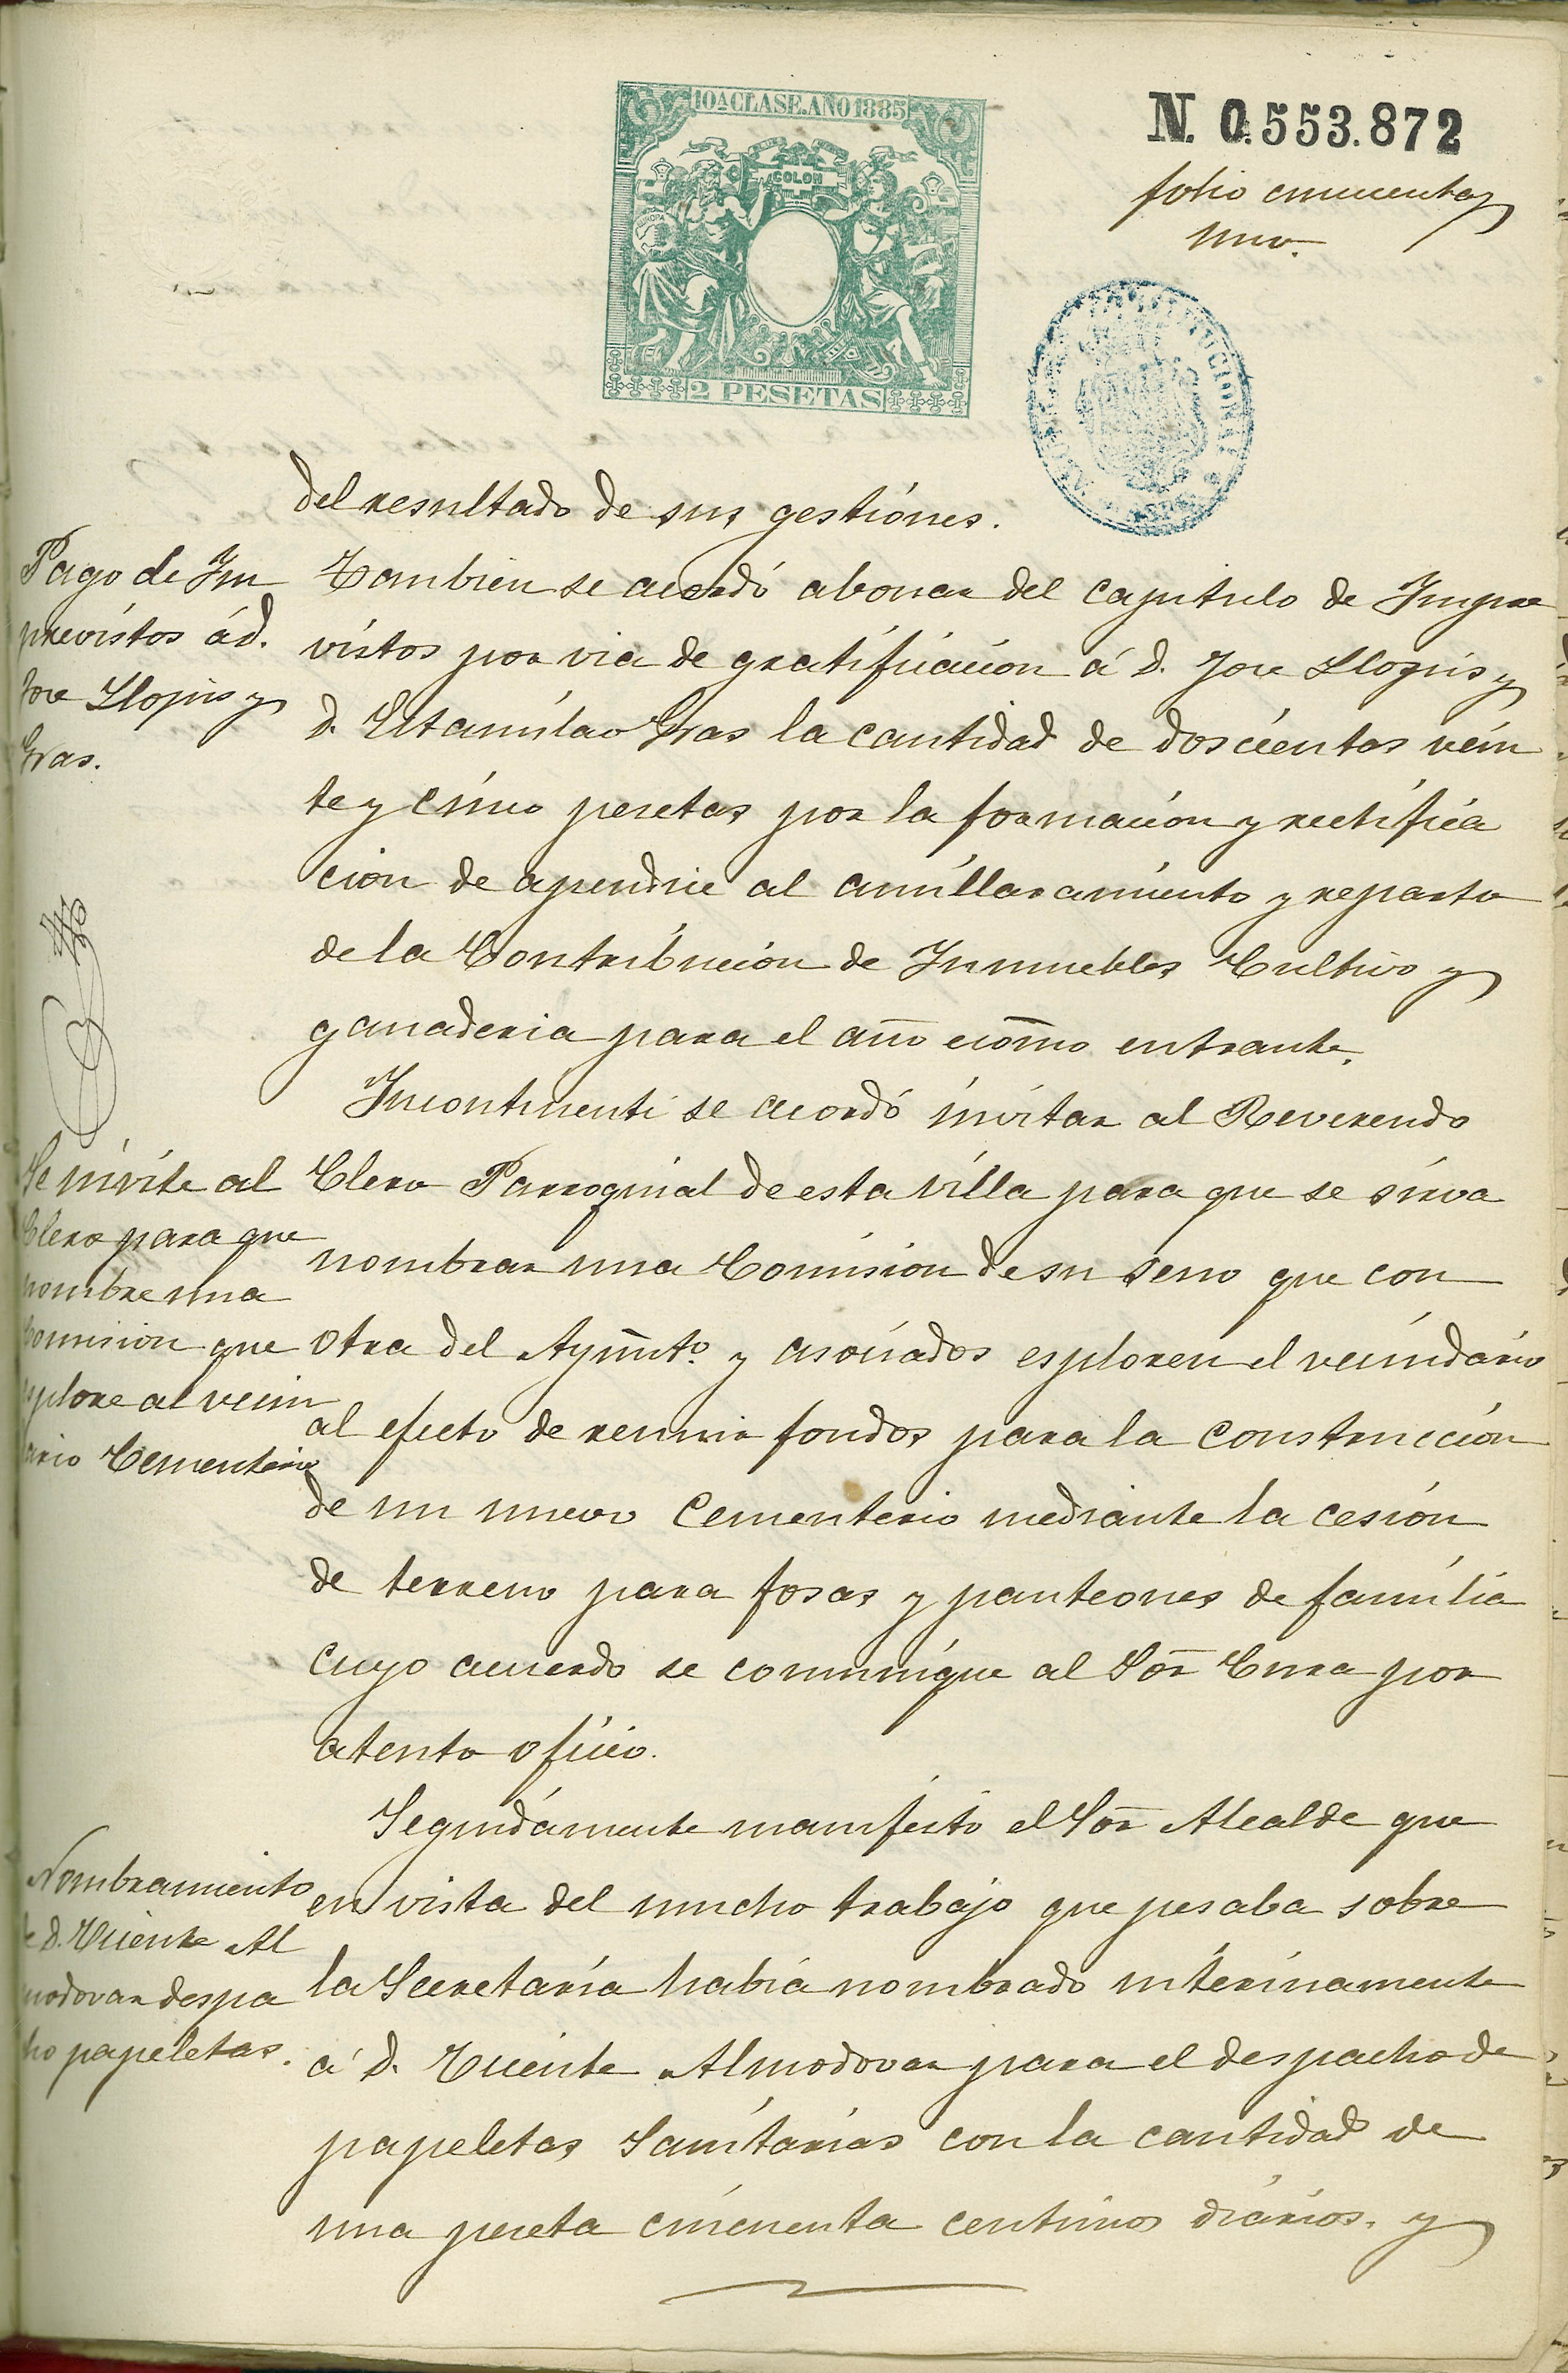 10ª CLASE. AÑO 1885
COLON
EUROPA
2 PESETAS
N. 0.553.872
folio cincuenta y
uno.
del resultado de sus gestiónes.
Pago de Im
previstos á d.
Jose Llopis y
Gras.
Tambien se acordó abonar del capitulo de Impre
vistos por via de gratificacion á D. Jose Llopis y
D. Estanislao Gras la cantidad de doscientas vein
te y cinco pesetas por la formacion y rectifica
cion de apendice al amillaramiento y reparto
de la Contribucion de Inmuebles Cultivo y
ganaderia para el año ecom̃o entrante.
Incontinenti se acordó invitar al Reverendo
Se invite al
Clero para que
nombre una
Comision que
esplore al vecin
dario Cementerio
Clero Parroquial de esta villa para que se sirva
nombrar una Comision de su seno que con
otra del Ayunt.º y asociados esploren el vecindario
al efecto de reunir fondos para la construccion
de un nuevo Cementerio mediante la cesion
de terreno para fosas y panteones de familia
cuyo acuerdo se comunique al Sor Cura por
atento oficio.
Seguidamente manifestó el Sor Alcalde que
Nombramiento
de D. Vicente Al
modovar despa
cho papeletas.
en vista del mucho trabajo que pesaba sobre
la Secretaria habia nombrado interinamente
á D. Vicente Almodovar para el despacho de
papeletas Sanitarias con la cantidad de
una peseta cincuenta centimos diarios. y